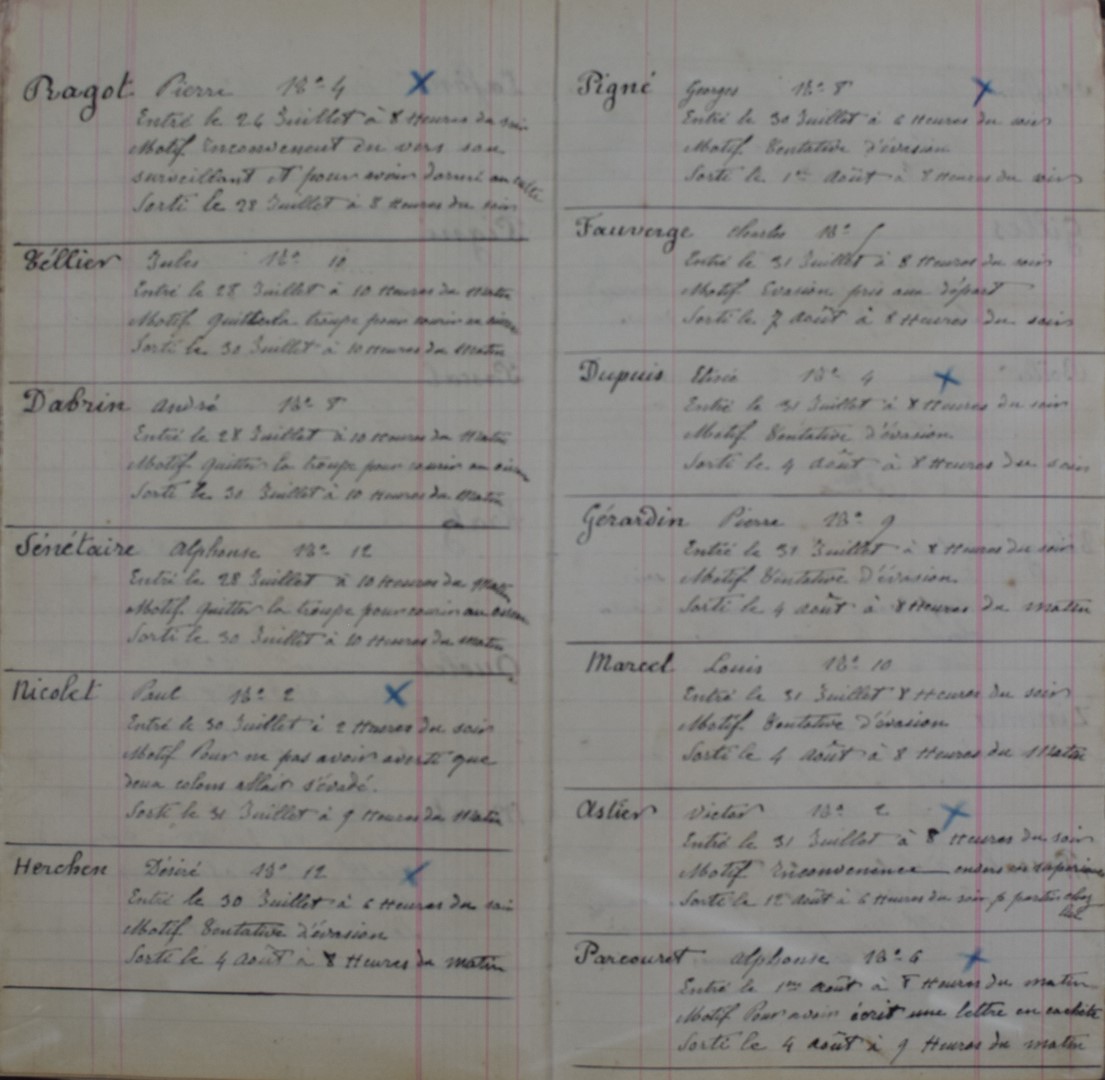 Ragot Pierre No 4 X
Entré le 26 Juillet à 8 Heures du soir
Motif Inconvenent en vers son
surveillant et pour avoir dormi au
Sorti le 28 Juillet à 8 Heures du soir
Téllier Jules No 10
Entré le 28 Juillet à 10 Heures du Matin
Motif quitter la troupe pour courir
Sorti le 30 Juillet à 10 Heures du Matin
Dabrin André No 8
Entré le 28 Juillet à 10 Heures du Matin
Motif quitter la troupe pour courir au
Sorti le 30 Juillet à 10 Heures du Matin
Sénétaire Alphonse No 12
Entré le 28 Juillet à 10 Heures du Matin
Motif quitter la troupe pour courir au
Sorti le 30 Juillet à 10 Heures du Matin
Nicolet Paul No 2 X
Entré le 30 Juillet à 2 Heures du soir
Motif Pour ne pas avoir averti que
deux colons allait s'évadé.
Sorti le 31 Juillet à 9 Heures du Matin
Herchen Désiré No 12 X
Entré le 30 Juillet à 6 Heures du soir
Motif Tentative d'évasion
Sorti le 4 Août à 8 Heures du matin
Pigné Georges No 8 X
Entré le 30 Juillet à 6 Heures du soir
Motif Tentative d'évasion
Sorti le 1er Août à 8 Heures du soir
Fauverge Charles No
Entré le 31 Juillet à 8 Heures du soir
Motif Evasion pris au départ
Sorti le 7 Août à 8 Heures du soir
Dupuis No 4 X
Entré le 31 Juillet à 8 Heures du soir
Motif Tentative d'évasion
Sorti le 4 Août à 8 Heures du soir
Gérardin Pierre No 9
Entré le 31 Juillet à 8 Heures du soir
Motif Tentative d'évasion
Sorti le 4 août à 8 Heures du matin
Marcel Louis No 10
Entré le 31 Juillet 8 Heures du soir
Motif Tentative d'évasion
Sorti le 4 août à 8 Heures du Matin
Astier Victor No 2 X
Entré le 31 Juillet à 8 Heures du soir
Motif Inconvenence envers
Sorti le 12 août à 6 Heures du soir p partir chez
lui
Parcouret Alphonse No 6 X
Entré le 1er août à 8 Heures du matin
Motif Pour avoir écrit une lettre en cachète
Sorti le 4 août à 9 Heures du matin